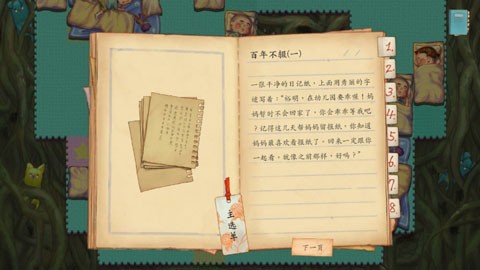 百年不辍(一)
一张干净的日记纸，上面用秀丽的字
迹写着："裕明，在幼儿园要乖哦！妈
妈暂时不会回家了，你会乖乖等我吧
？记得这几天帮妈妈留报纸，你知道
妈妈最喜欢看报纸了。回来一定跟你
一起看，就像之前那样，好吗？"
1.
2.
3.
4.
5.
6.
7.
8
主选单
下一页